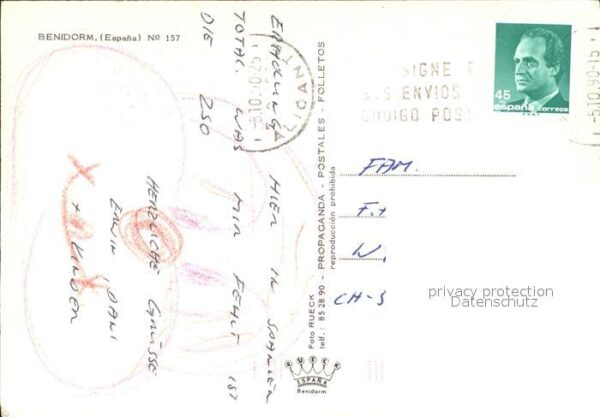 BENIDORM, (España) Nº 157
HIER IN SPANIEN
TOTAL. WAS MIR FEHLT IST
DIE 250
HERZLICHE GRÜSSE
ERWIN DANI
+ KINDER
Foto RUECK - PROPAGANDA - POSTALES - FOLLETOS
telf.: 85 28 90 - reproduccion prohibida
RUECK
ESPAÑA
Benidorm
ALICANT
-5.10.90-15
SIGNE
SUS ENVIOS
CODIGO POS
-5.10.90-1
45
españa correos
FAM.
F.
W.
CH-
privacy protection
Datenschutz